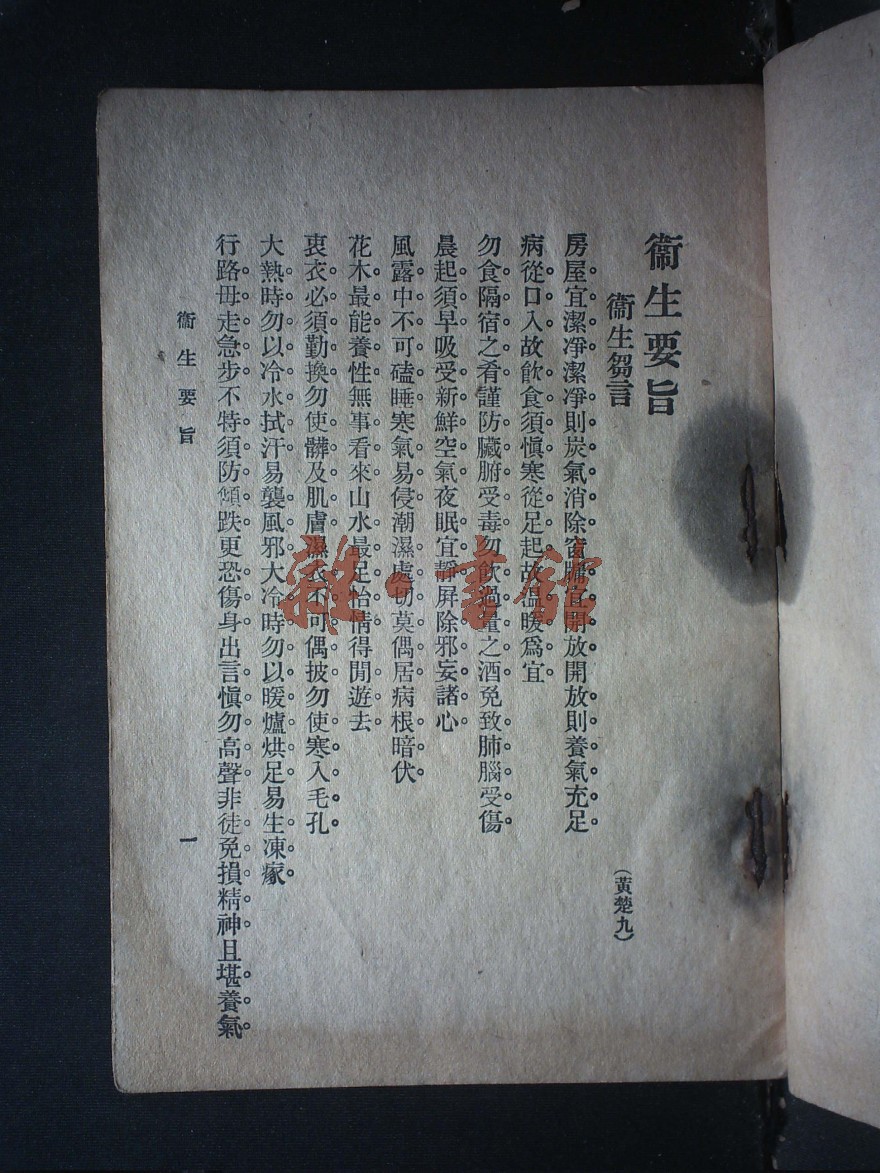 衞生要旨
衞生芻言
(黃楚九)
房屋宜潔凈潔凈則炭氣消除窗牖宜開放開放則養氣充足。
病從口入故飮食須愼寒從足起故溫暖爲宜
勿食隔宿之肴謹防臟腑受毒勿飮過量之酒免致肺腦受傷
晨起須早吸受新鮮空氣夜眠宜靜屏除邪妄諸心
風露中不可磕睡寒氣易侵潮濕處切莫偶居病根暗伏
花木最能養性無事看來山水最足怡情得閒遊去
衷衣必須勤換勿使髒及肌膚濕衣不可偶披勿使寒入毛孔
大熱時勿以冷水拭汗易襲風邪大冷時勿以暖爐烘足易生凍瘃
行路毋走急步不特須防傾跌更恐傷身出言愼勿高聲非徒免損精神且堪養氣
衞生要旨
一
雜·書館